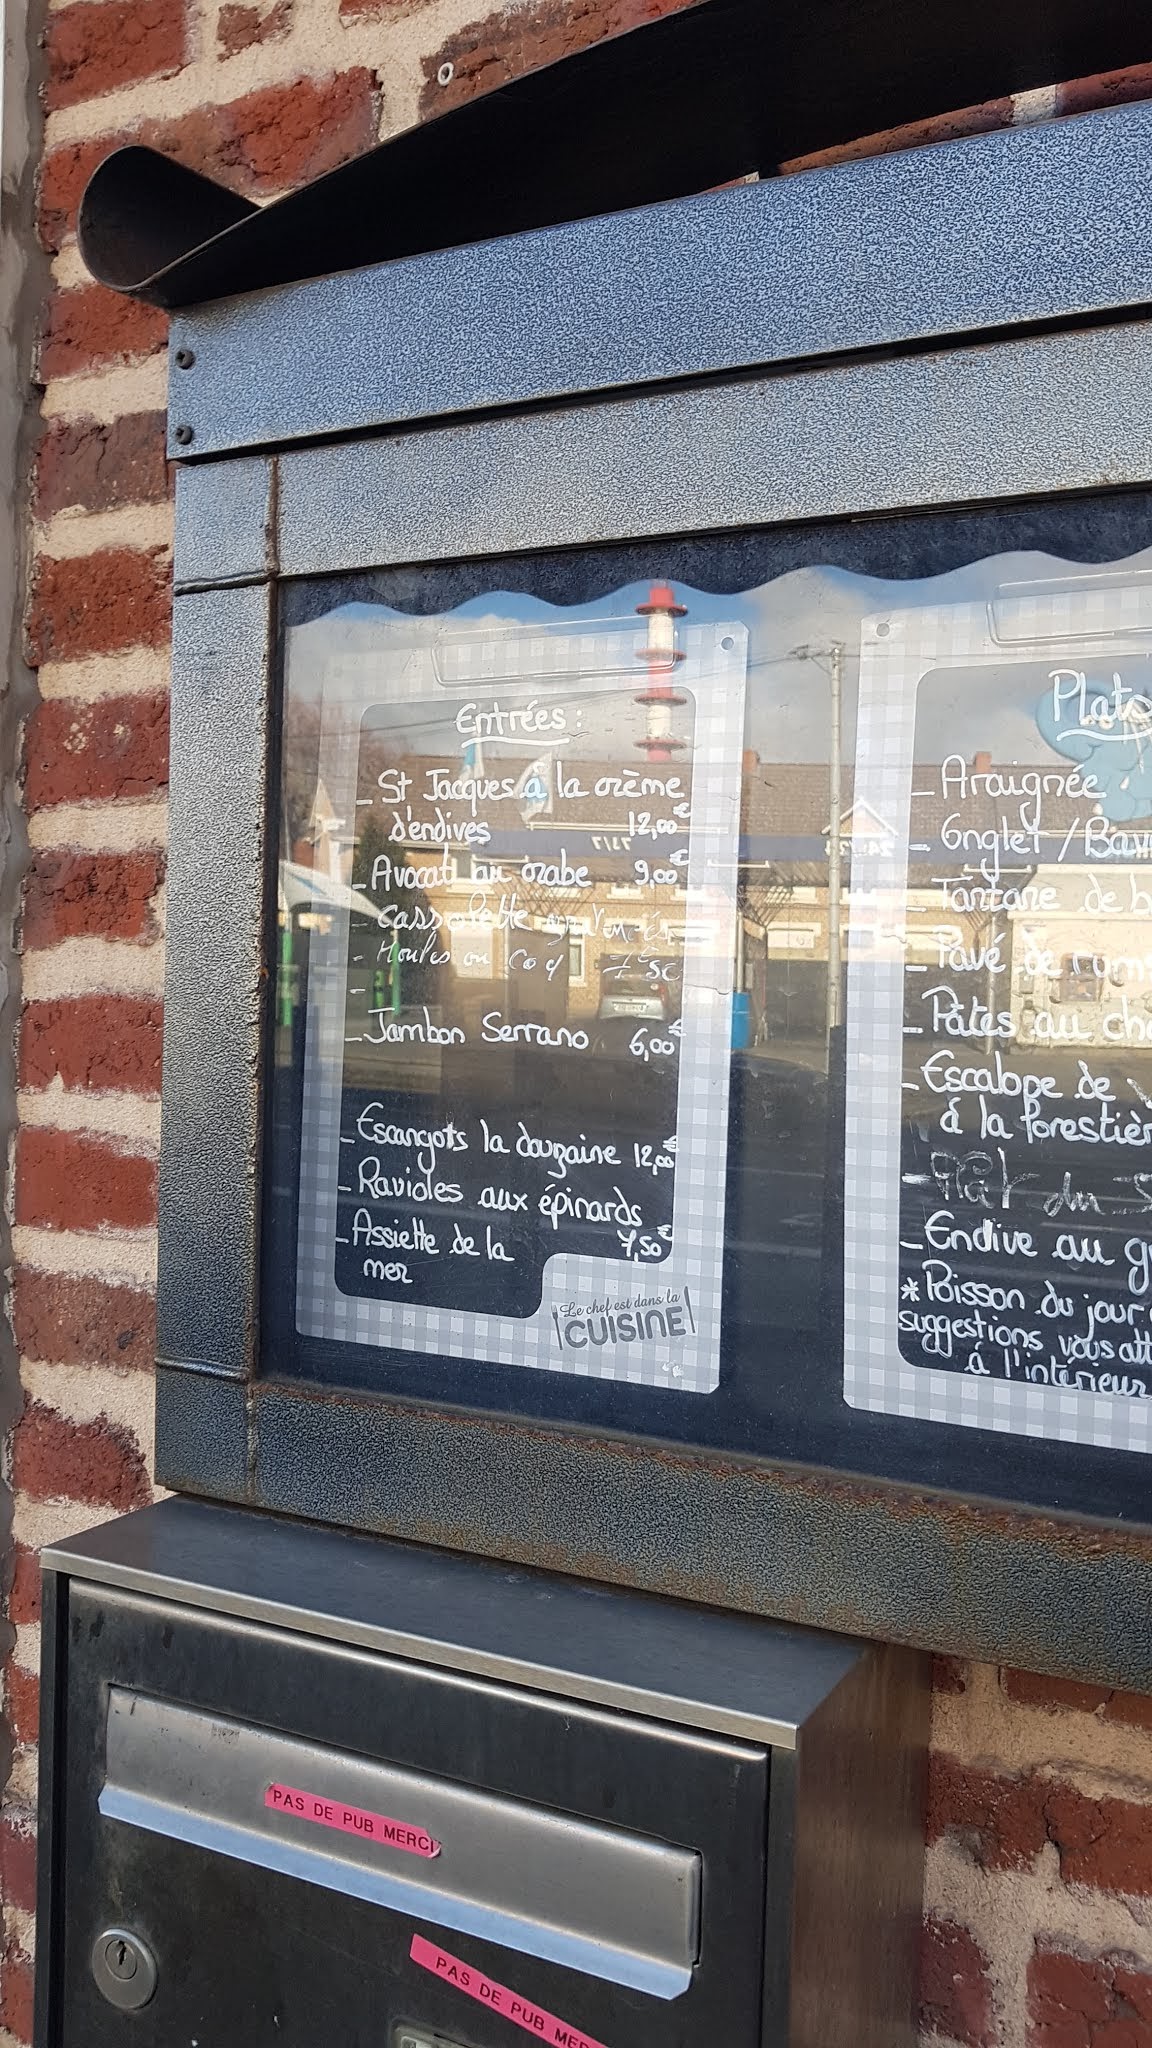 Entrées :
- St Jacques à la crème
d'endives 12,00€
- Avocat au crabe 9,00€
- Cassolette
- Moules ou
-
- Jambon Serrano 6,00€
- Escargots la douzaine 12,00€
- Ravioles aux épinards
- Assiette de la 7,50€
mer
Le chef est dans la
CUISINE
Plats
- Araignée
- Onglet / Bav
- Tartare de b
- Pavé de rums
- Pâtes au cho
- Escalope de
à la forestièr
- Plat du
- Endive au g
* Poisson du jour
suggestions vous att
à l'intérieur
PAS DE PUB MERCI
PAS DE PUB MER